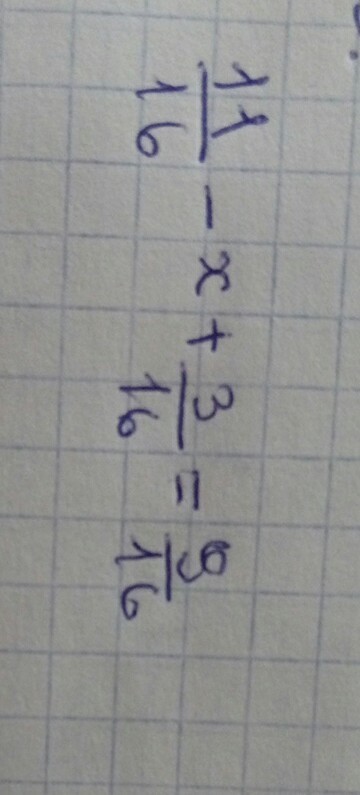 11/16 - x + 3/16 = 9/16